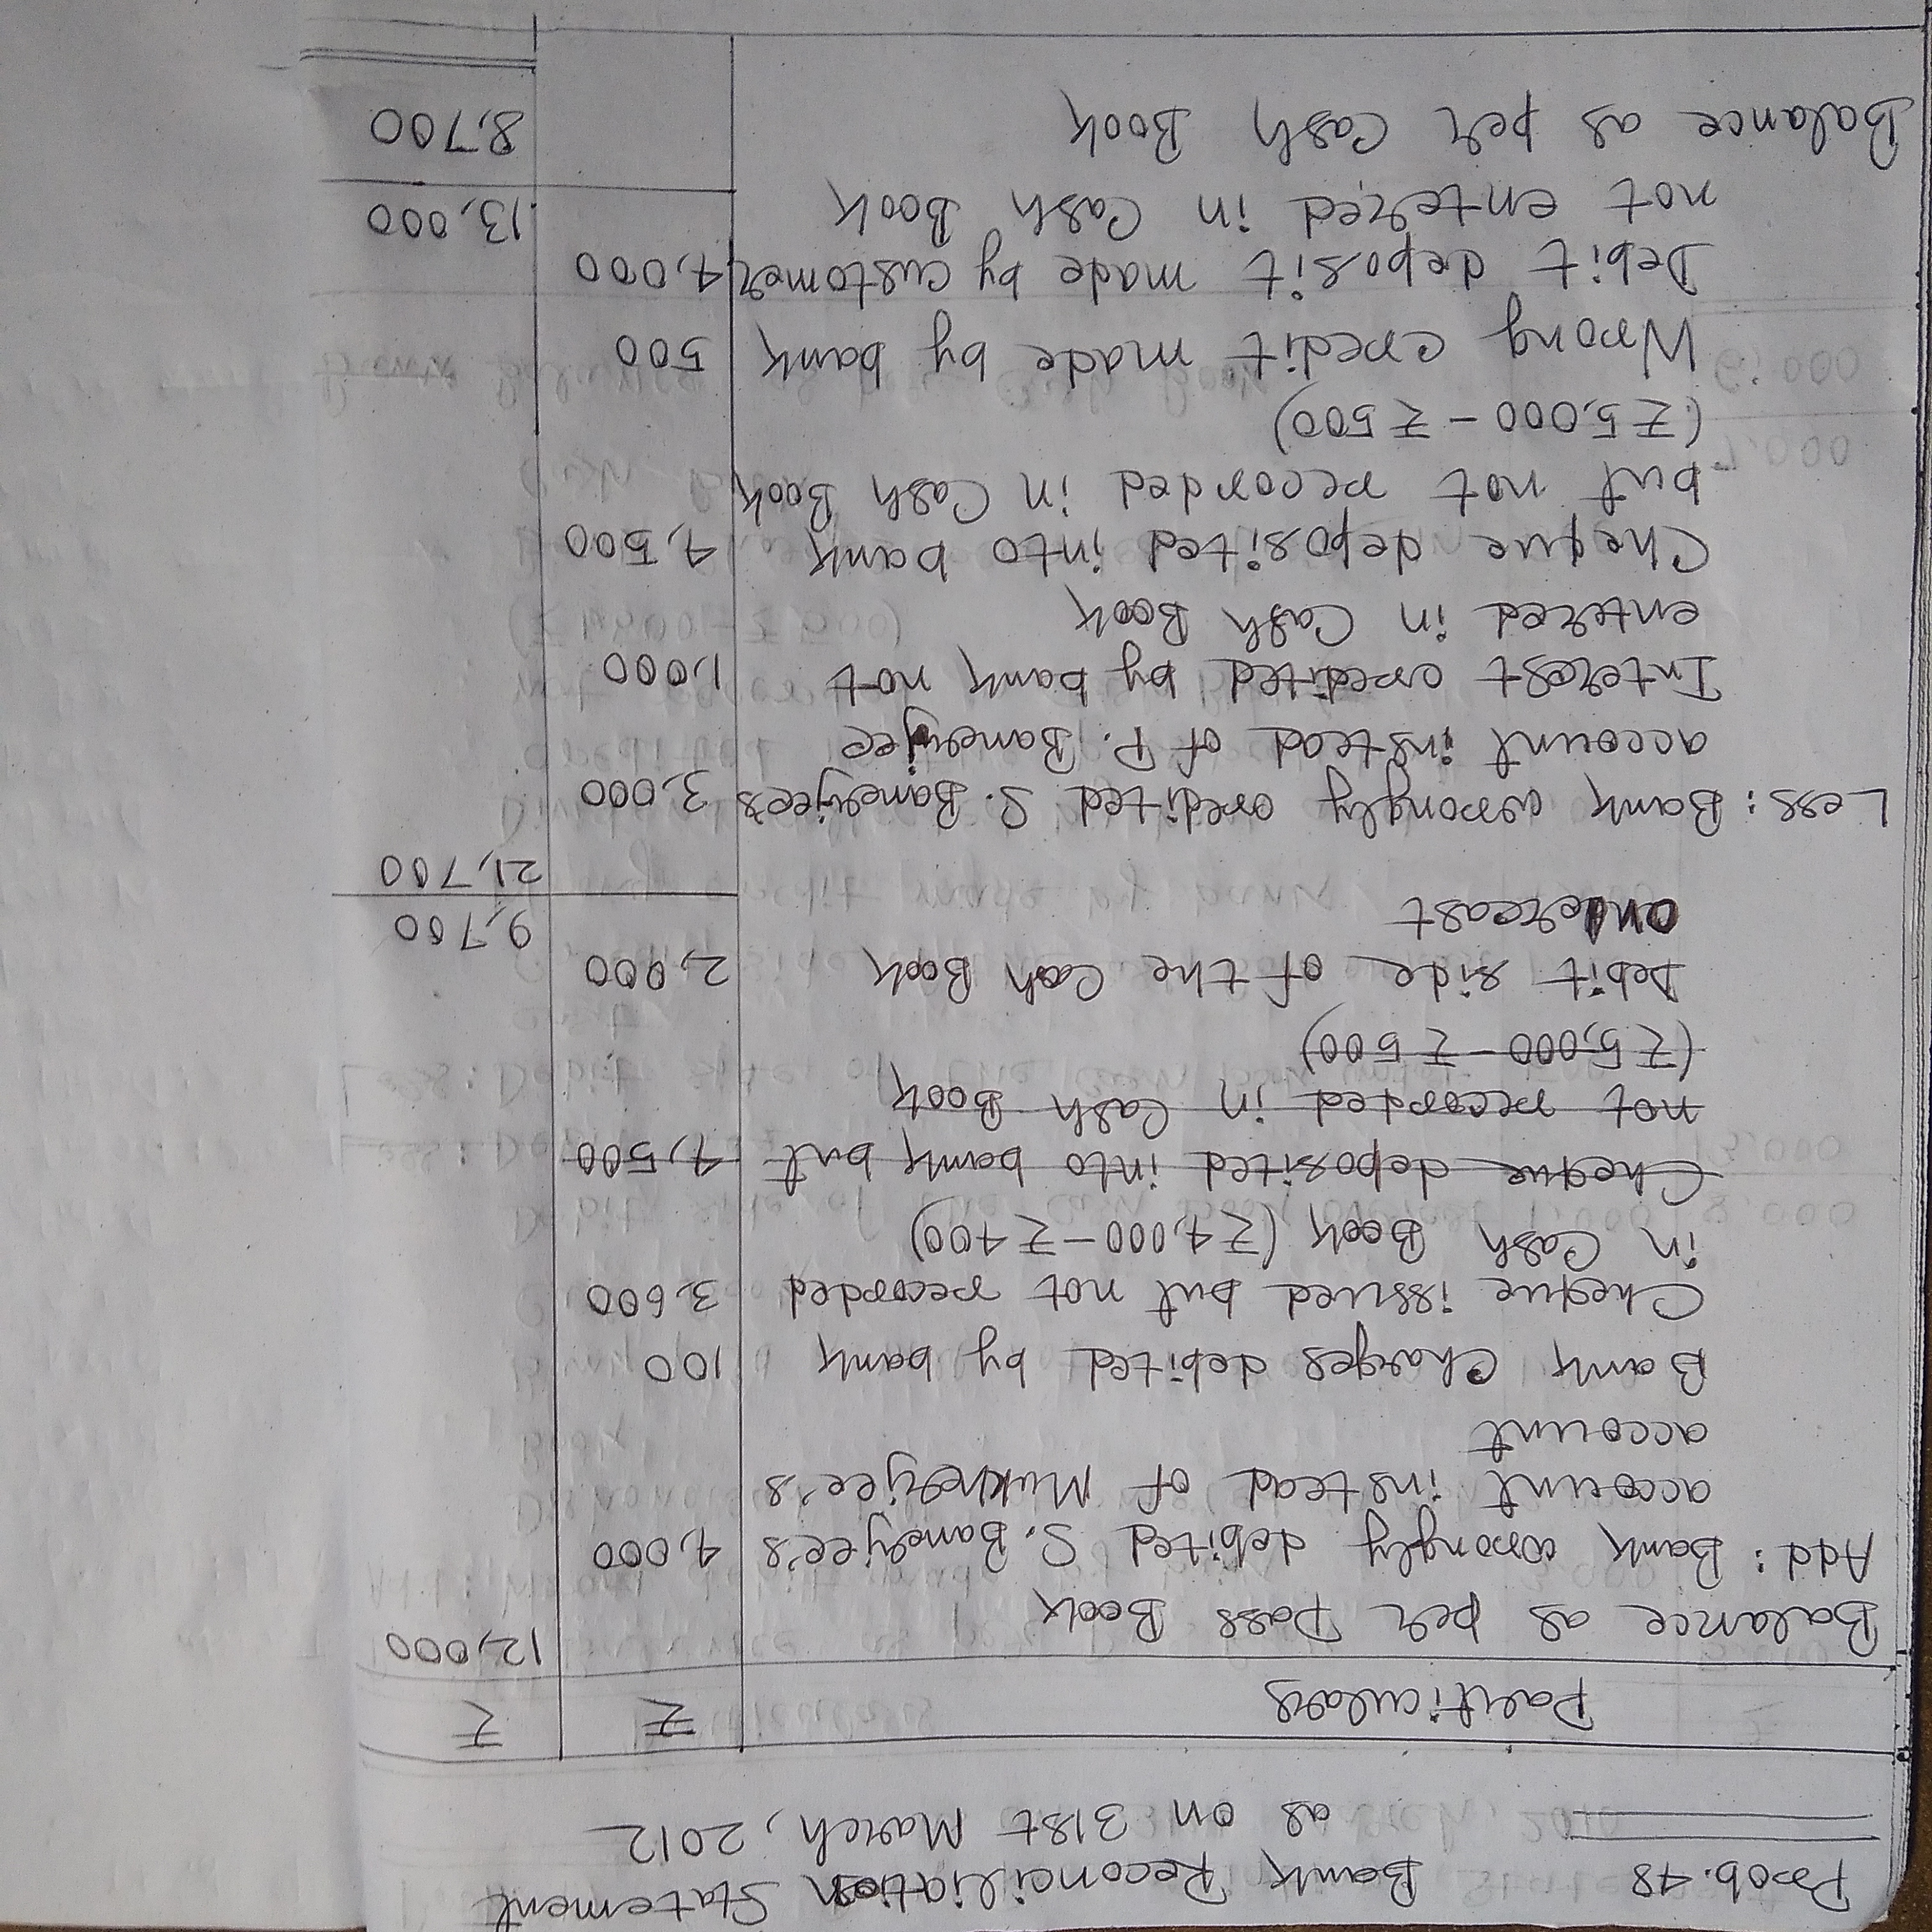 Prob. 48 Bank Reconciliation Statement
as on 31st March, 2012
Particulars ₹ ₹
Balance as per Pass Book 12,000
Add: Bank wrongly debited S. Banerjee's 4,000
account instead of Mukherjee's
account
Bank Charges debited by bank 100
Cheque issued but not recorded 3,600
in Cash Book (₹4,000 - ₹400)
Cheque deposited into bank but 4,500
not recorded in Cash Book
(₹5,000 - ₹500)
Debit side of the Cash Book 2,000
undercast 9,700
21,700
Less: Bank wrongly credited S. Banerjee's 3,000
account instead of P. Banerjee
Interest credited by bank not 1,000
entered in Cash Book
Cheque deposited into bank 4,500
but not recorded in Cash Book
(₹5,000 - ₹500)
Wrong credit made by bank 500
Debit deposit made by customer 4,000
not entered in Cash Book 13,000
Balance as per Cash Book 8,700